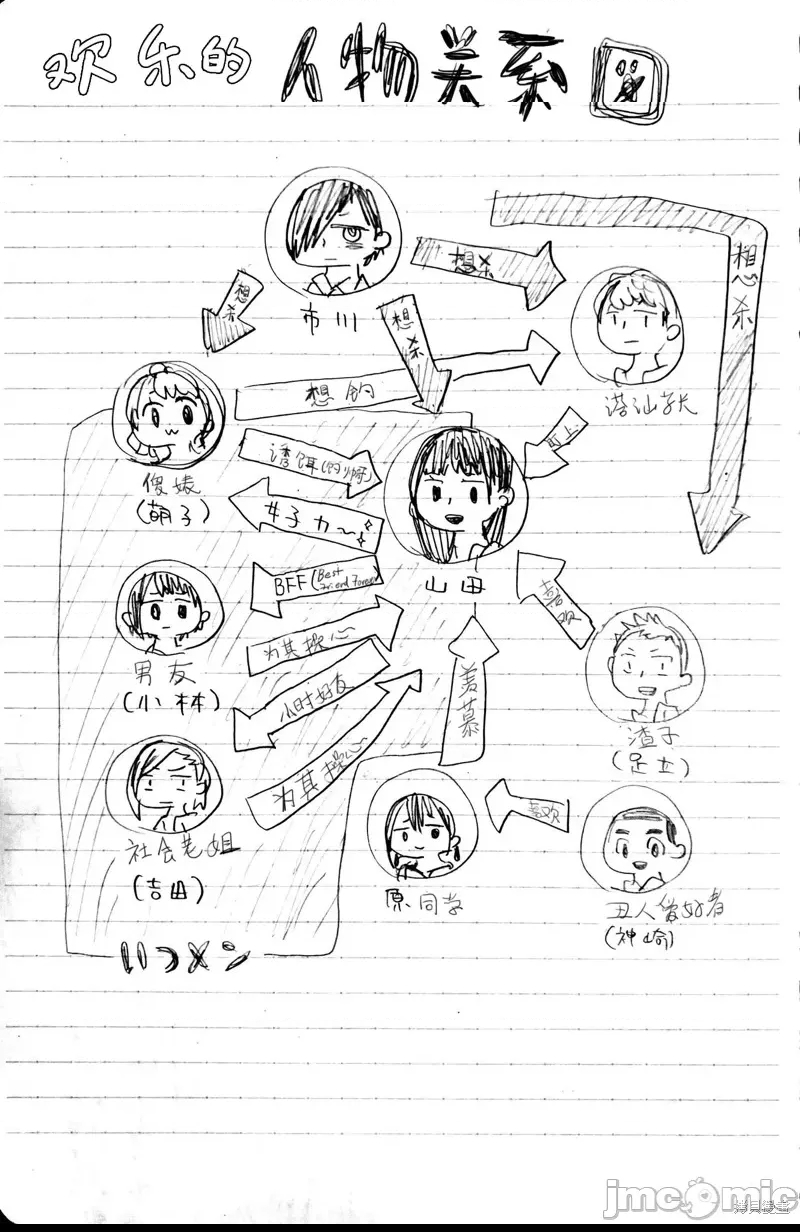 欢乐的人物关系図
想杀
想杀
想杀
想杀
市川
搭讪学长
想钓
盯上
诱饵(钓师)
傻婊
(萌子)
女子力～
山田
BFF(Best Friend Forever
喜欢
为其操心
男友
(小林)
小时好友
羡慕
渣子
(足立)
为其操心
社会老姐
(吉田)
喜欢
原同学
丑人爱好者
(神崎)
いつメン
jmcomic
拷貝漫畫